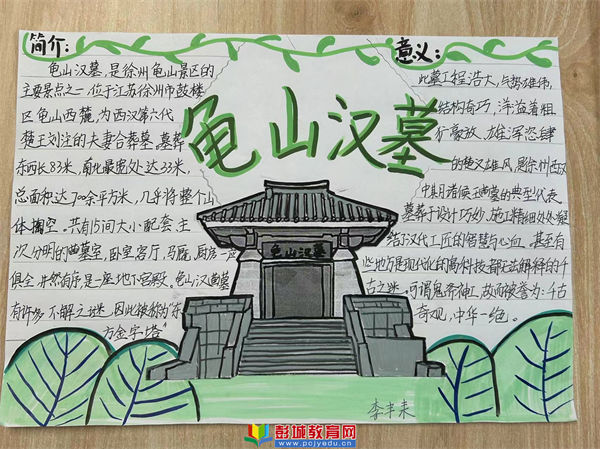 简介:
龟山汉墓,是徐州龟山景区的
主要景点之一,位于江苏徐州市鼓楼
区龟山西麓,为西汉第六代
楚王刘注的夫妻合葬墓,墓葬
东西长83米,南北最宽处达33米,
总面积达700余平方米,几乎将整个山
体掏空。共有15间大小配套、主
次分明的墓室,卧室客厅,马厩,厨房一应
俱全,井然有序,是一座地下宫殿。龟山汉墓
有许多不解之迷,因此被称为“东
方金字塔”
龟山汉墓
龟山汉墓
意义:
此墓工程浩大,与势雄伟,
结构奇巧,洋溢着粗
犷豪放、雄浑恣肆
的楚汉雄风,是徐州西汉
中期诸侯王墓的典型代表
墓葬于设计巧妙,施工精细处处凝
结了汉代工匠的智慧与心血。甚至有
些地方是现代化的高科技都无法解释的千
古之迷,可谓鬼斧神工,故而被誉为:千古
奇观,中华一绝。
彭城教育网
www.pcjyedu.cn